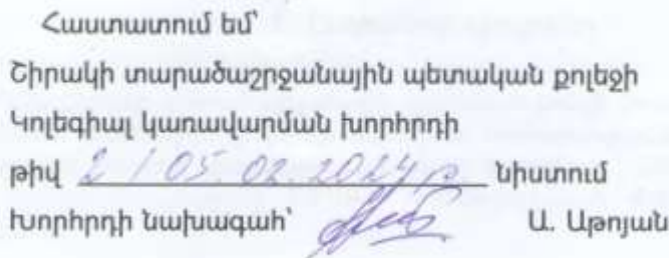 Հաստատում եմ՝
Շիրակի տարածաշրջանային պետական քոլեջի
Կոլեգիալ կառավարման խորհրդի
թիվ 2 / 05. 02. 2024 թ նիստում
Խորհրդի նախագահ՝ Ա. Աթոյան